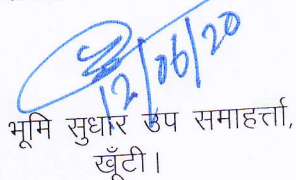 12/06/20
भूमि सुधार उप समाहर्त्ता,
खूँटी।